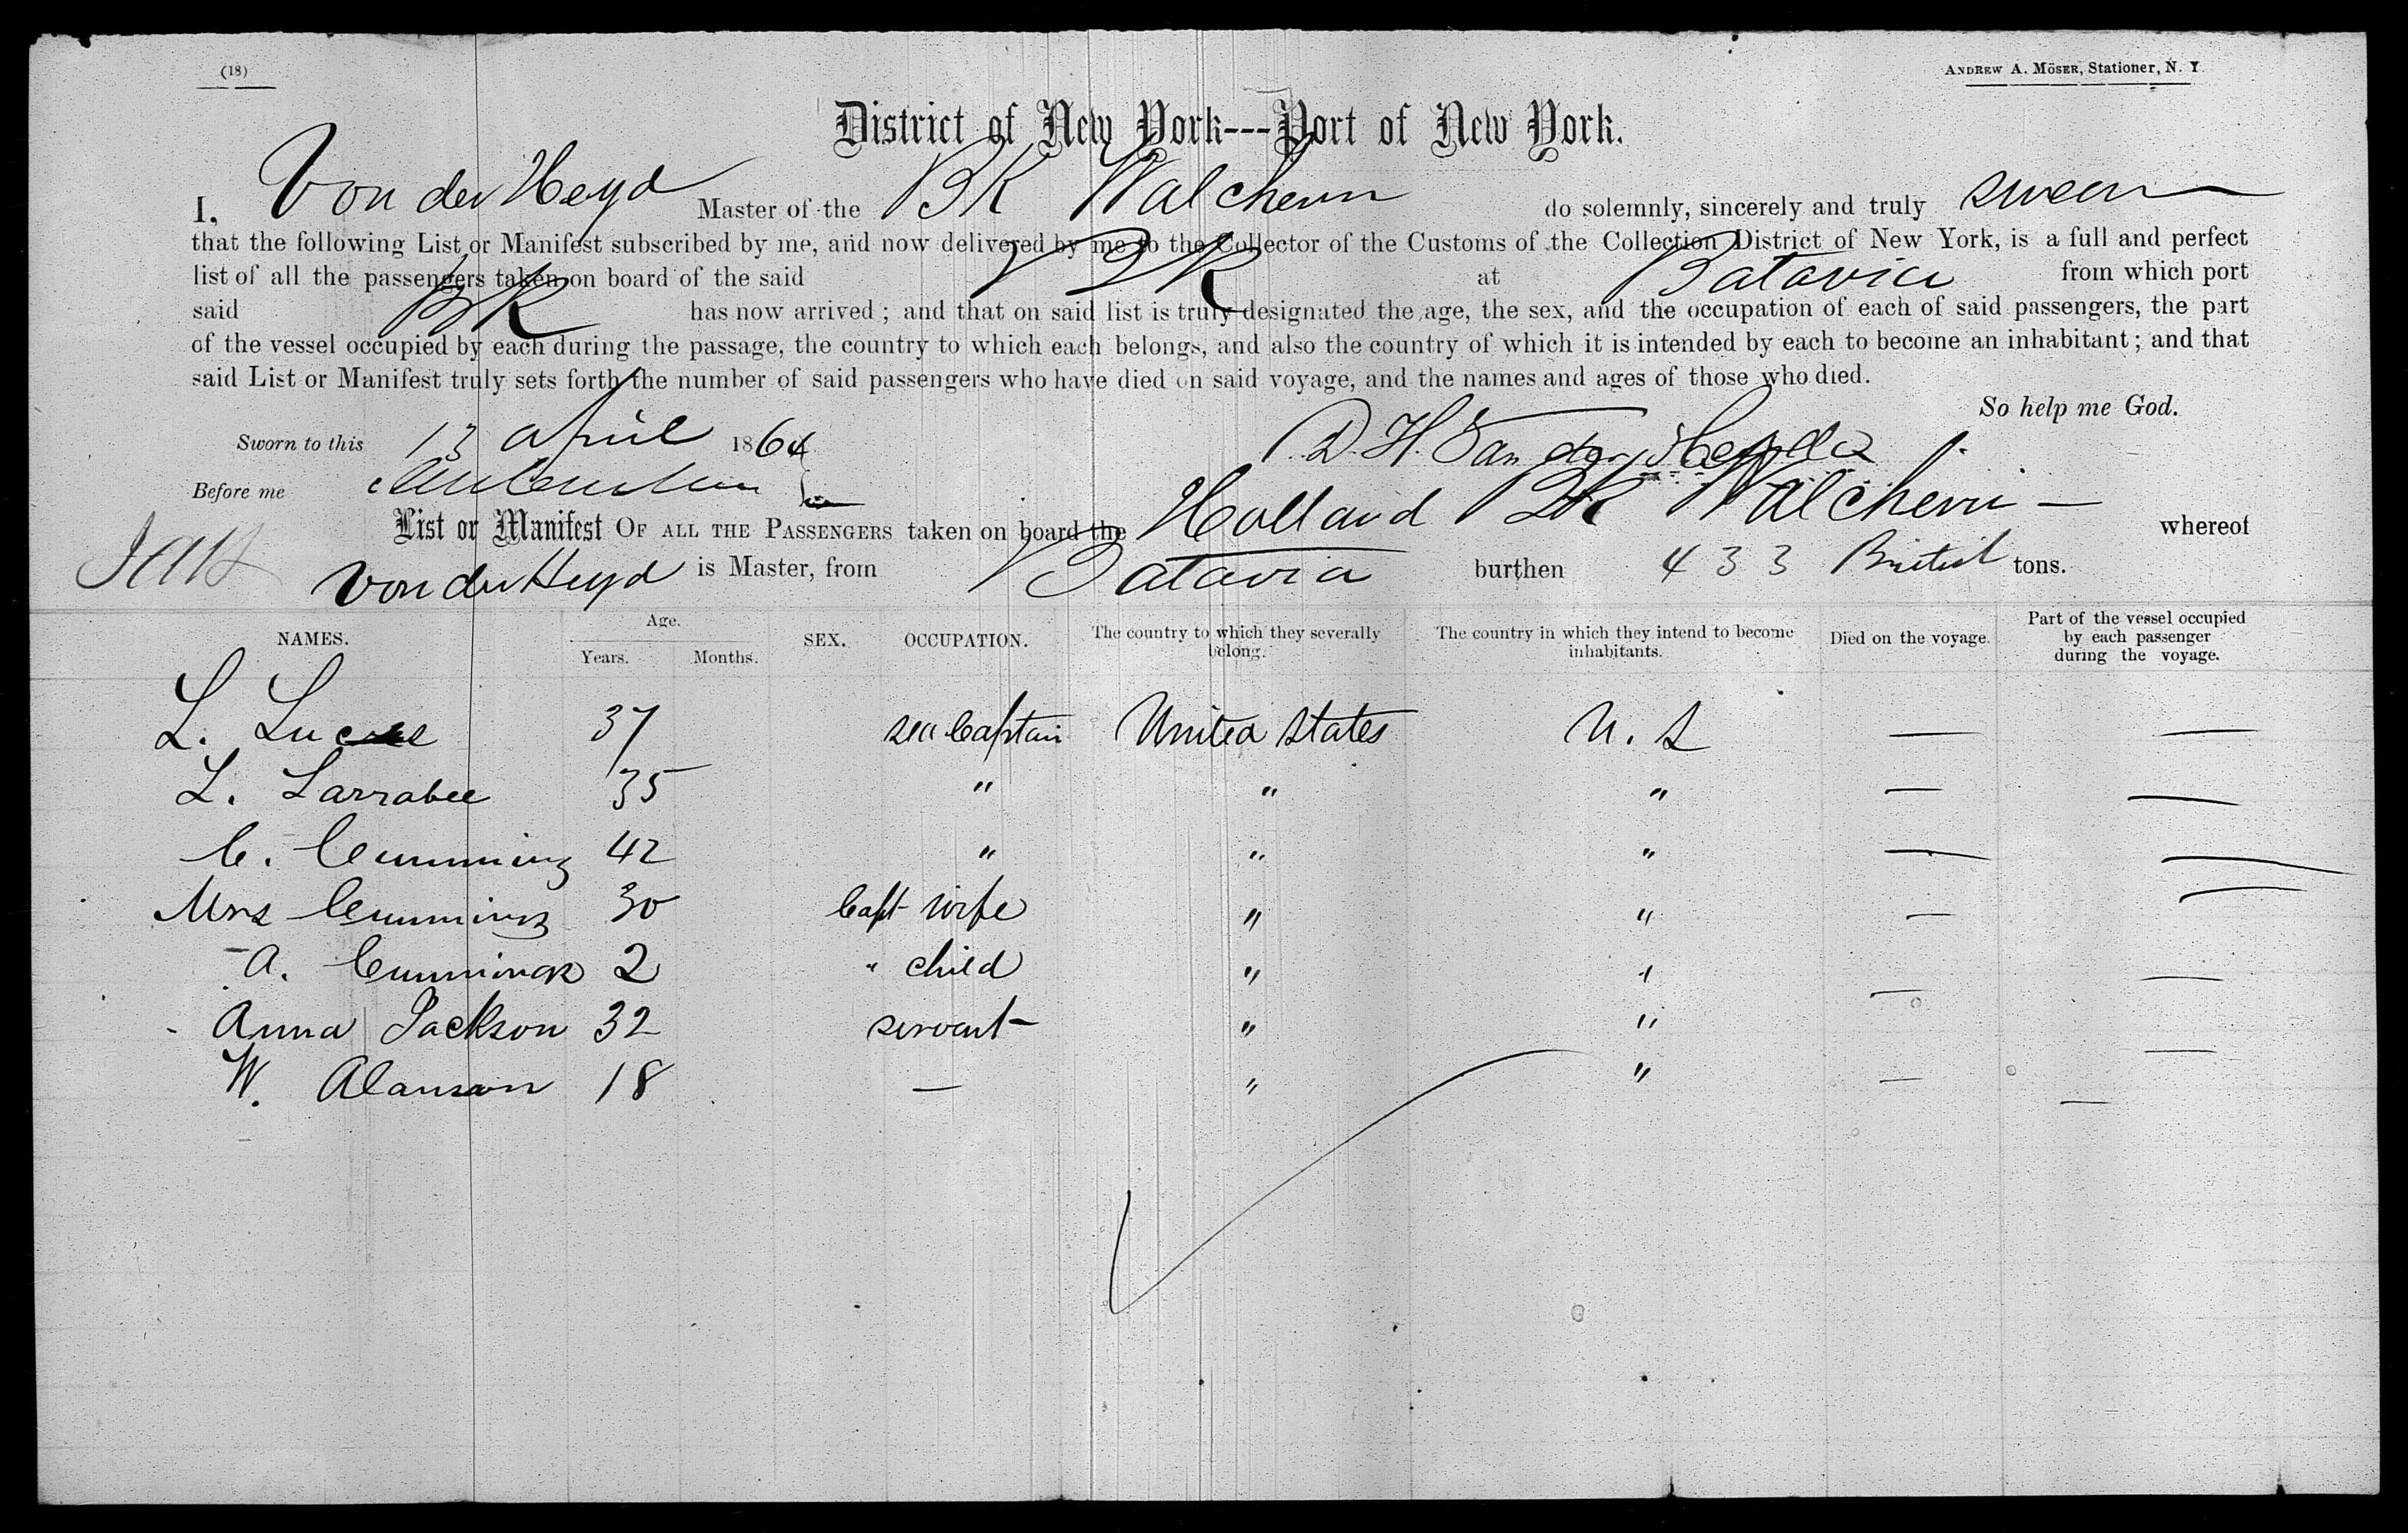 (18)
ANDREW A. MÖSER, Stationer, N. Y
District of New York---Port of New York.
I, Von der Heyd Master of the BK Walchern do solemnly, sincerely and truly swear
that the following List or Manifest subscribed by me, and now delivered by me to the Collector of the Customs of the Collection District of New York, is a full and perfect
list of all the passengers taken on board of the said BK at Batavia from which port
said BK has now arrived; and that on said list is truly designated the age, the sex, and the occupation of each of said passengers, the part
of the vessel occupied by each during the passage, the country to which each belongs, and also the country of which it is intended by each to become an inhabitant; and that
said List or Manifest truly sets forth the number of said passengers who have died on said voyage, and the names and ages of those who died.
So help me God.
Sworn to this 13 April 1864
D. H. Van der Heyde
Before me
List or Manifest OF ALL THE PASSENGERS taken on board the Holland BK Walchern — whereof
Von der Heyd is Master, from Batavia burthen 433 British tons.
NAMES. Age. Years. Months. SEX. OCCUPATION. The country to which they severally belong. The country in which they intend to become inhabitants. Died on the voyage. Part of the vessel occupied by each passenger during the voyage.
L. 37 sea Captain United States U. S — —
L. Larrabee 35 " " " — —
C. Cumming 42 " " " — —
Mrs Cummings 30 Capt wife " " — —
A. Cummings 2 " child " " — —
Anna Jackson 32 servant " " —
W. Alanson 18 — " " — —